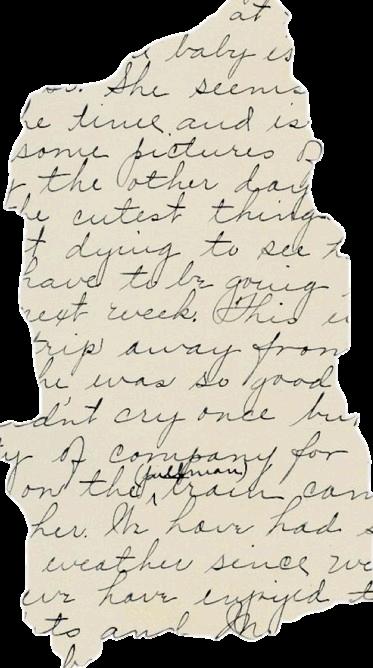 at
baby is
so. She seems
he time, and is
some pictures of
t the other day
he cutest thing
t dying to see h
have to be going
next week. This i
trip away from
he was so good
dn't cry once bu
ty of company for
(pullman)
on the train cam
her. We have had s
weather since we
we have enjoyed t
ts and M